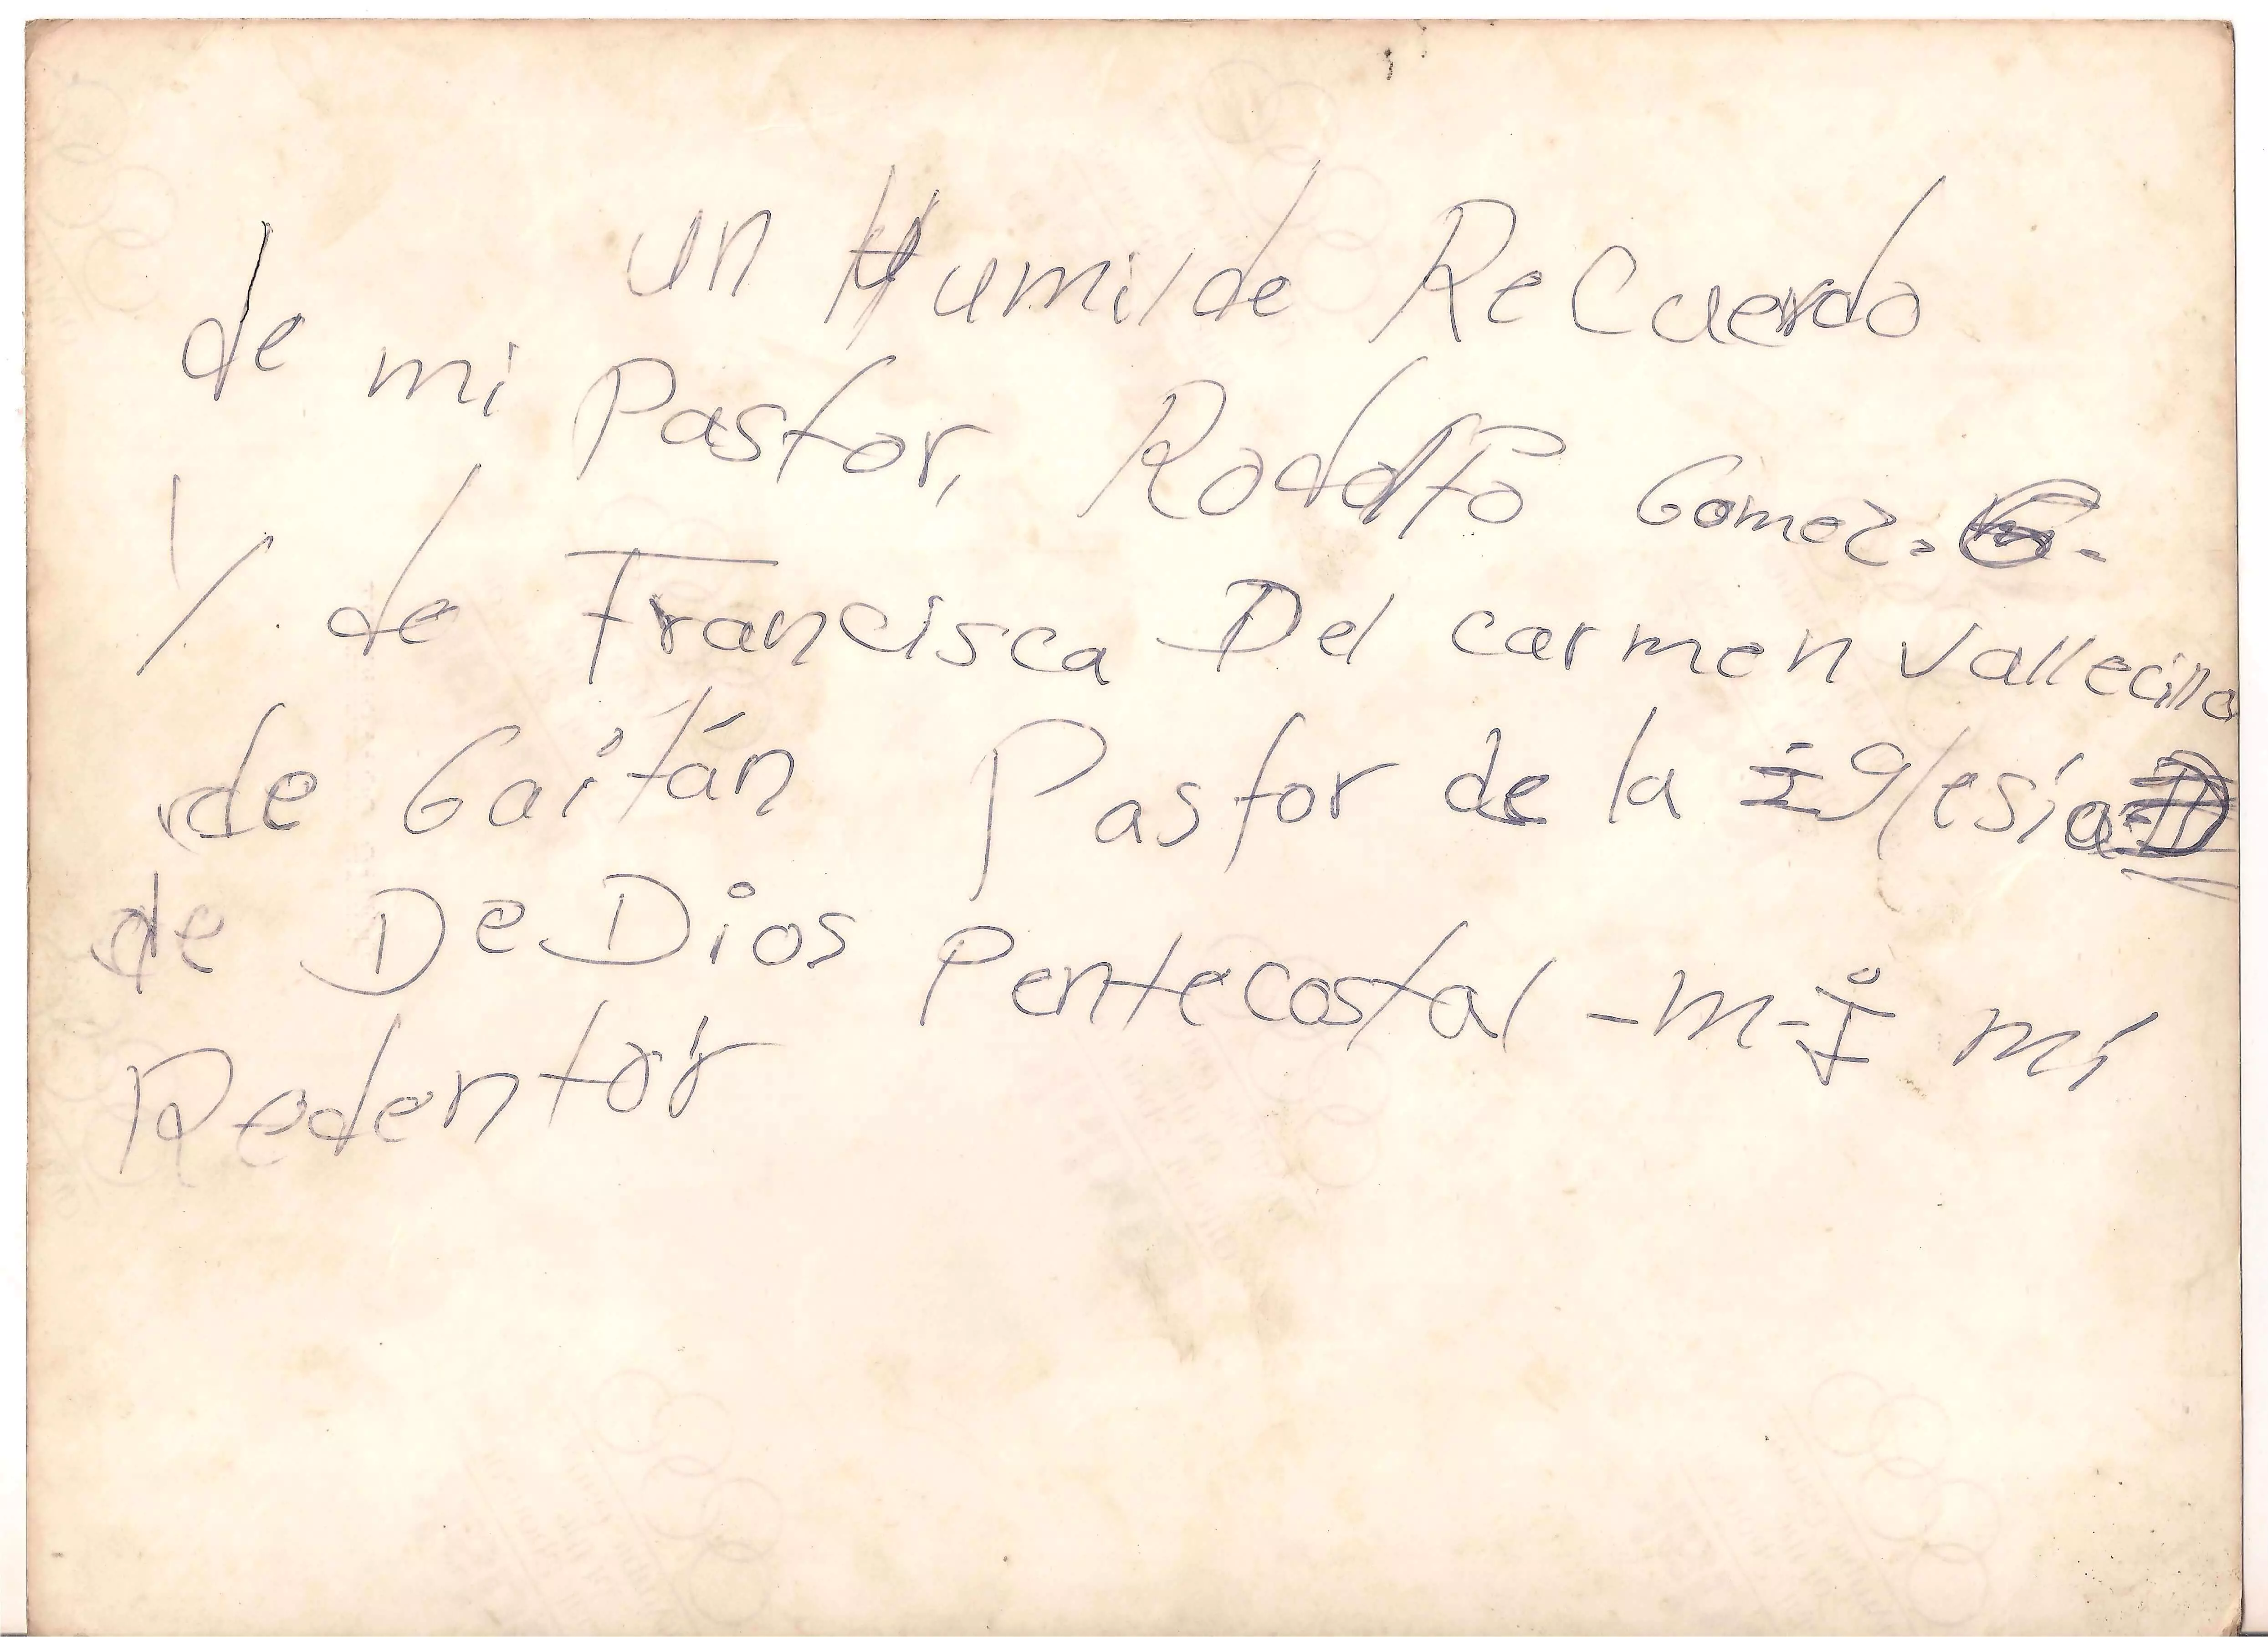 un Humilde ReCuerdo
de mi Pastor, Rodolfo Gomez.
Y de Francisca Del carmen Vallecillo
de Gaitán Pastor de la iglesia
de De Dios Pentecostal -M-I mi
Redentor